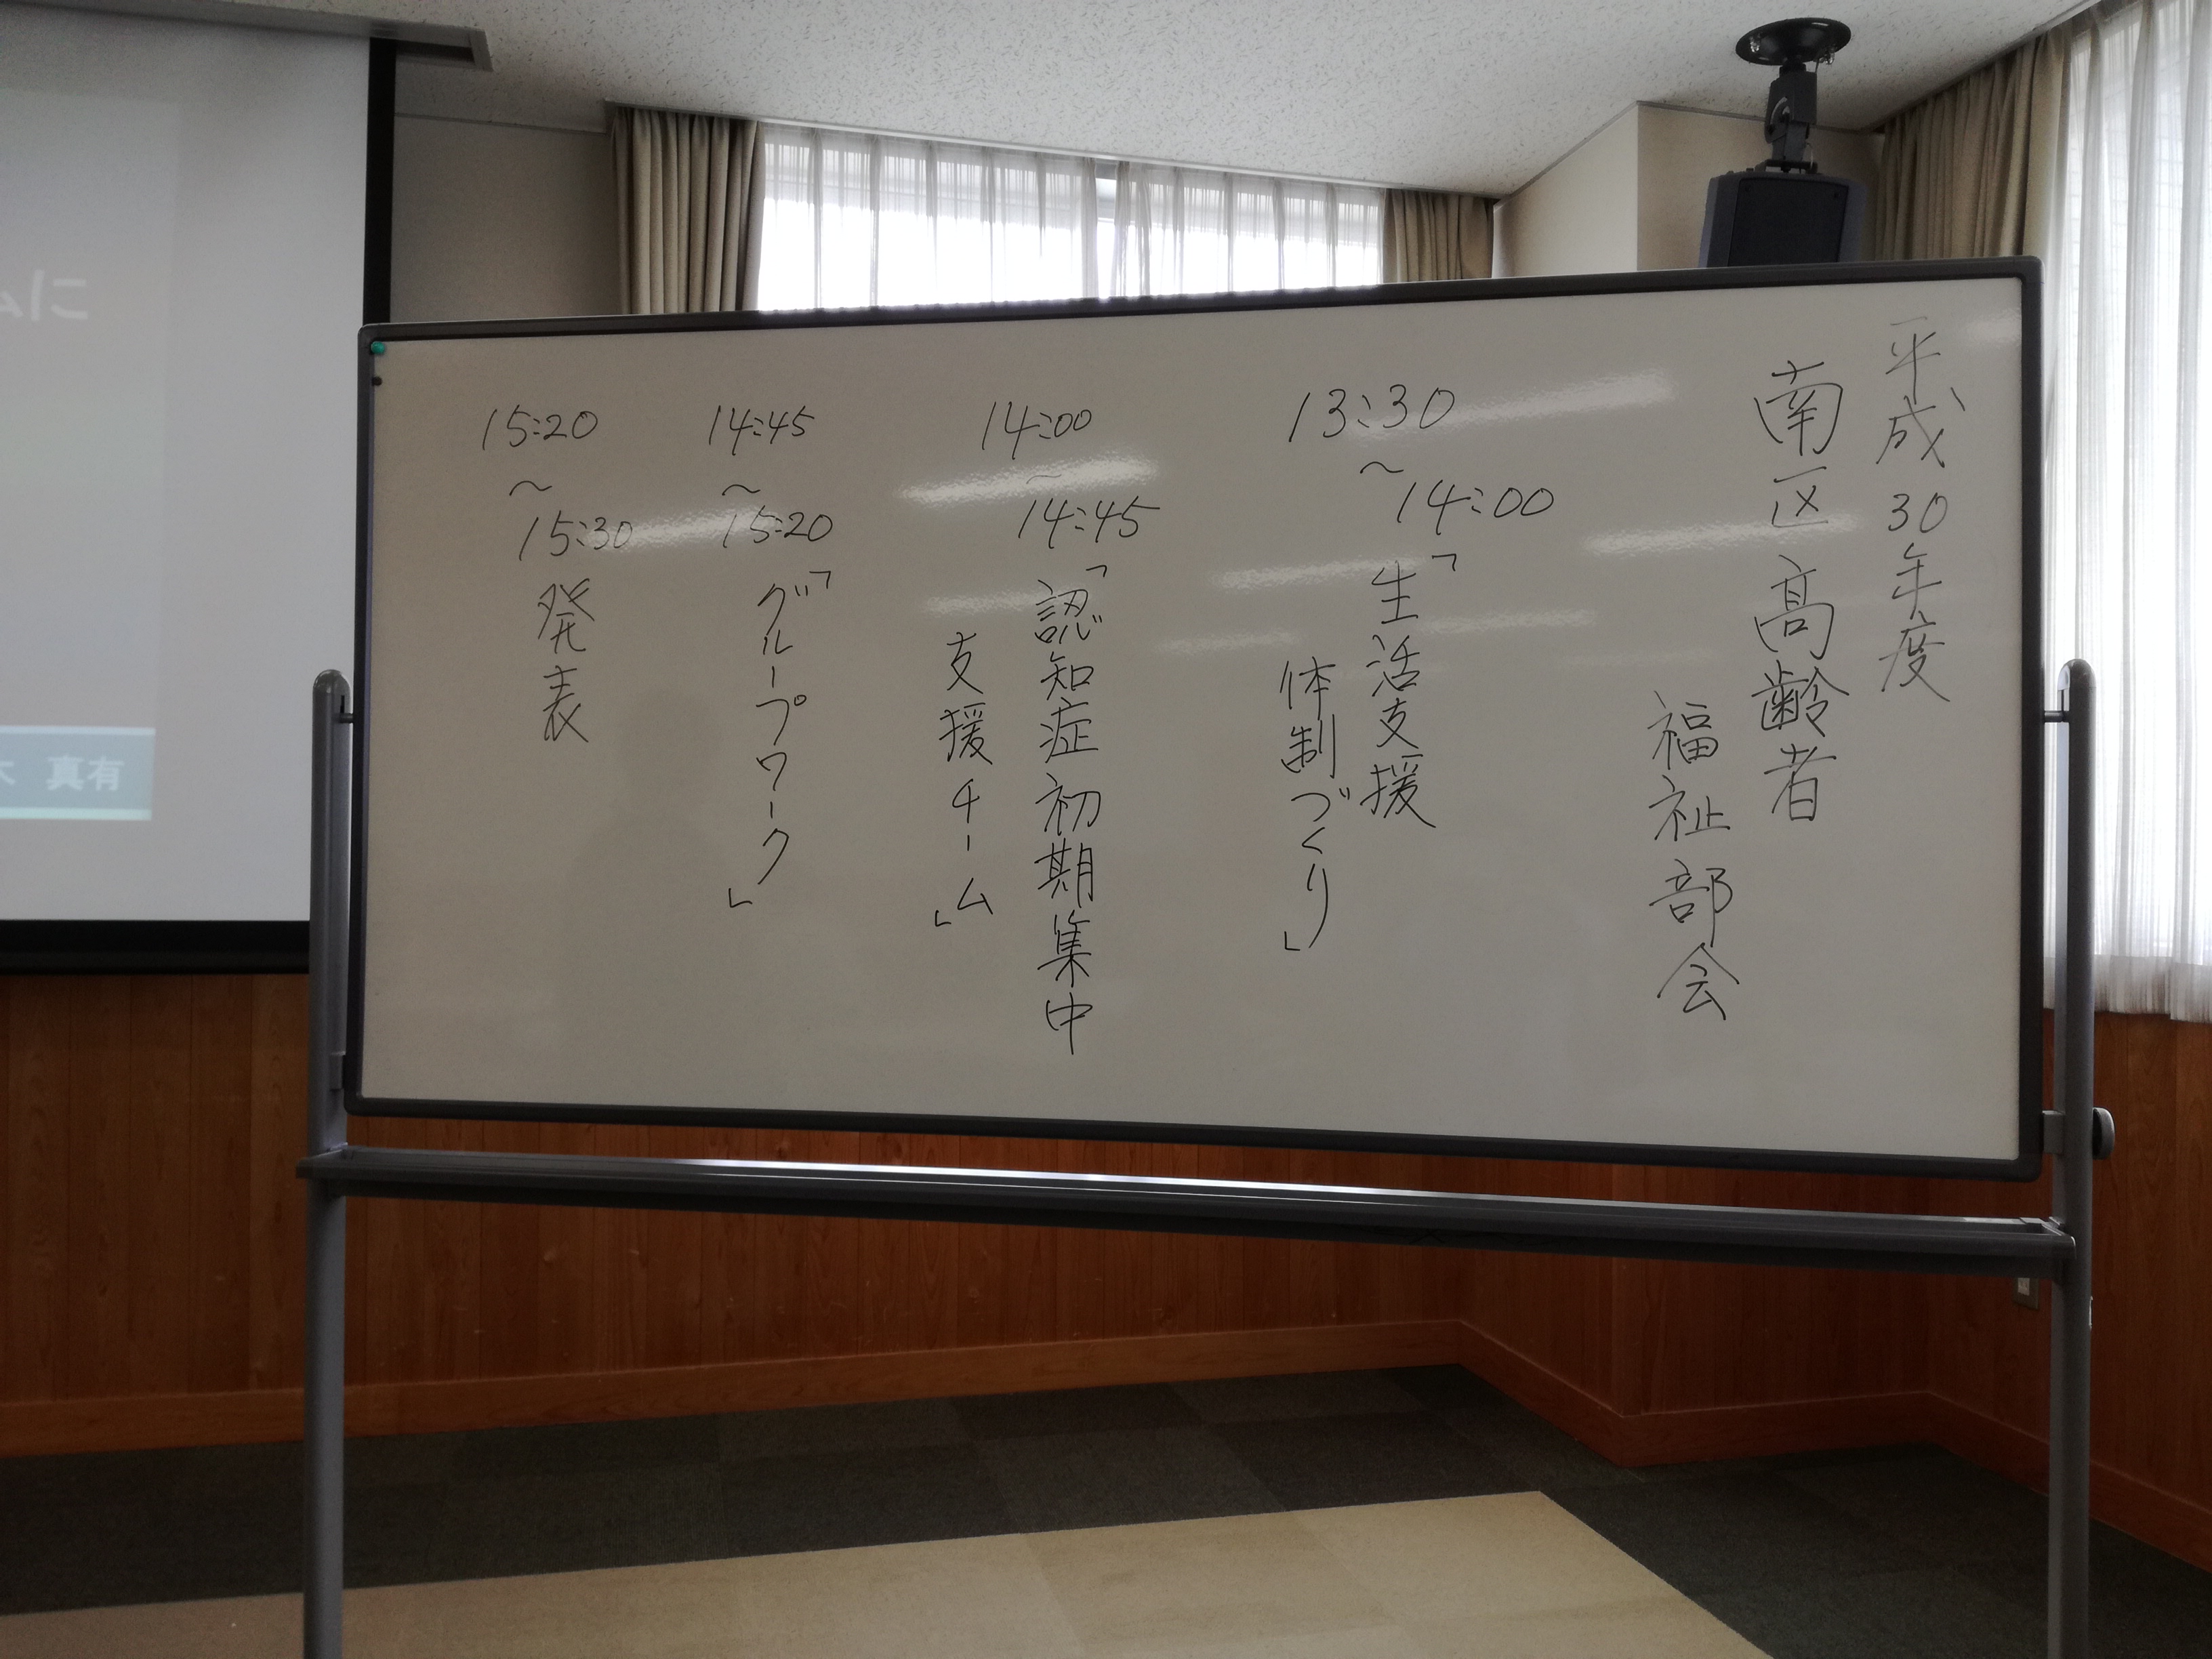 平成30年度
南区高齢者
福祉部会
13:30
～
14:00
「生活支援
体制づくり」
14:00
～
14:45
「認知症初期集中
支援チーム」
14:45
～
15:20
「グループワーク」
15:20
～
15:30
発表
真有